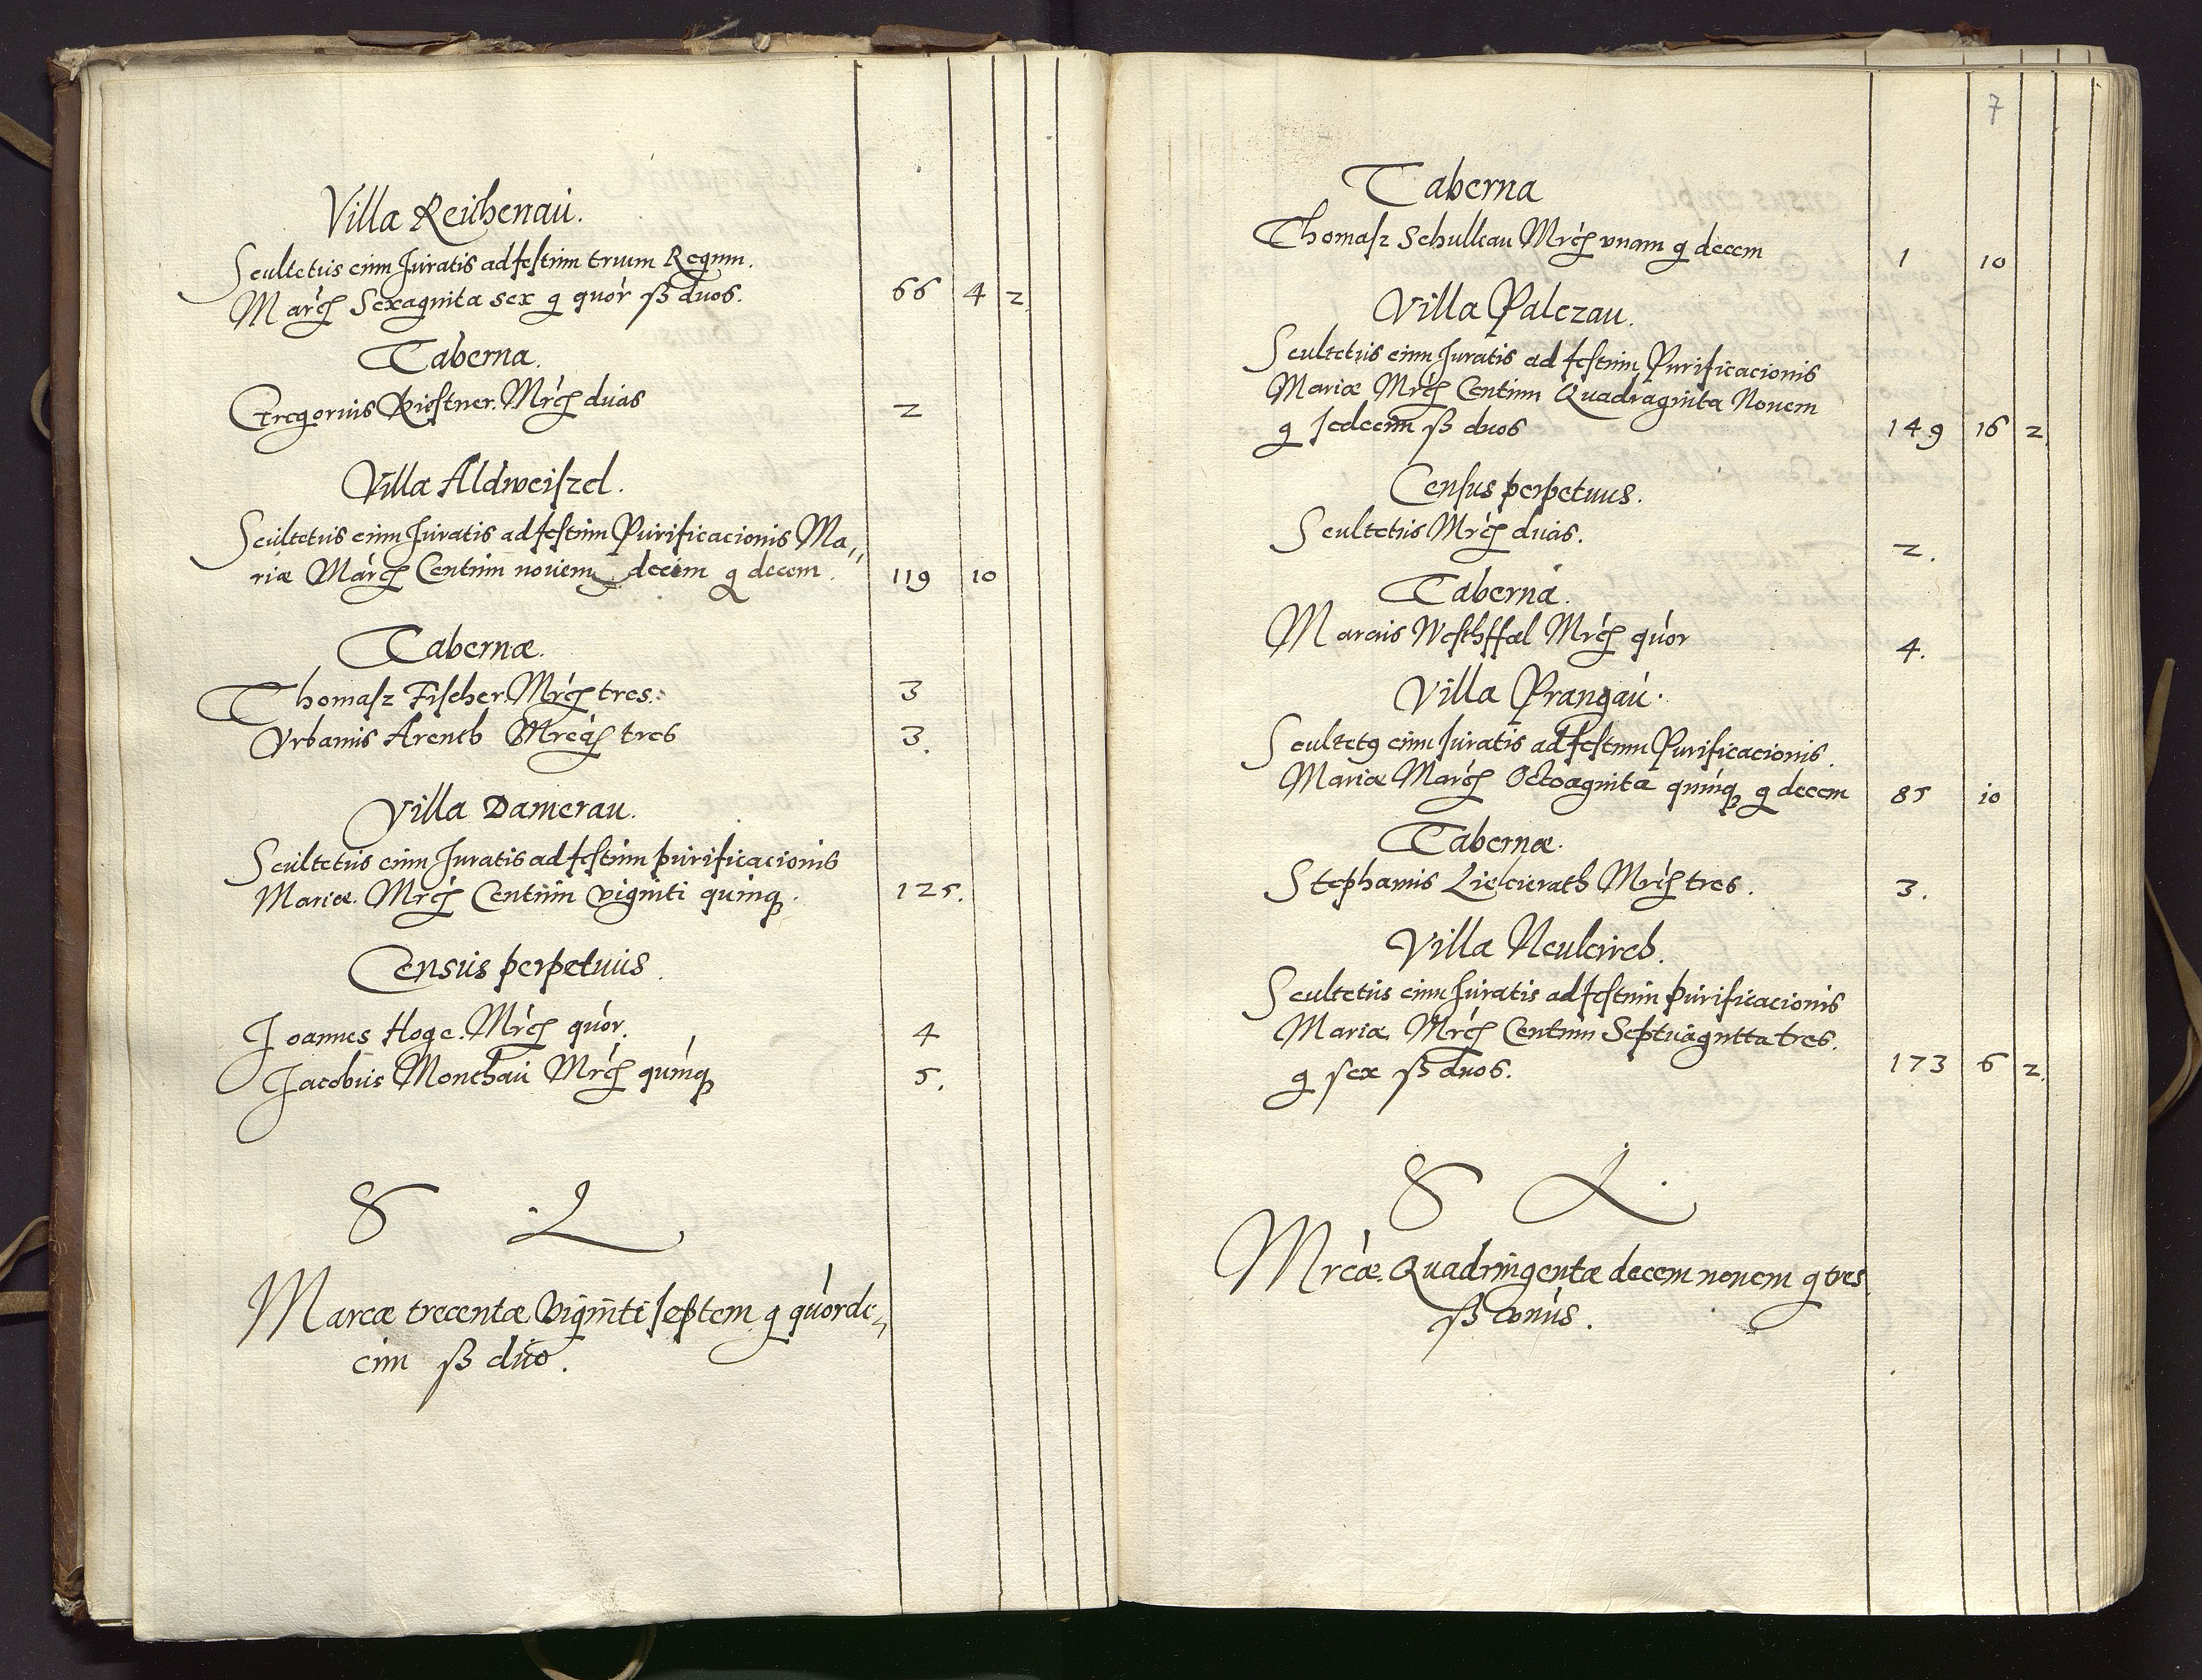 Villa Reichenau.
Scultetus cum Juratis ad festum trium Regum.
March Sexaginta sex g quor ß duos. 66 4 2
Taberna.
Gregorius Kistner. Mrch duas 2
Villa Aldweiszel.
Scultetus cum Juratis ad festum Purificacionis Ma„
riæ March Centum novem decem g decem. 119 10
Tabernæ.
Thomasz Fischer. Mrch tres. 3
Urbanus Arentb Mrcч tres 3.
Villa Damerau.
Scultetus cum Juratis ad festum purificacionis
Mariæ. Mrch Centum viginti quinq. 125.
Census perpetuus.
Joannes Hoge. Mrch quor. 4
Jacobus Monchau Mrch quinq 5.
S L
Marcæ trecentæ Viginti septem g quorde„
cim ß duo.
7
Taberna
Thomasz Schulleau Mrch unam g decem 1 10
Villa Palczau.
Scultetus cum Juratis ad festum Purificacionis
Mariæ Mrch Centum Quadraginta Novem
g sedecim ß duos 149 16 2
Census perpetuus.
Scultetus Mrch duas. 2.
Taberna.
Marcus Westhffal Mrch quor 4.
Villa Prangau.
Scultetg cum Juratis ad festum Purificacionis.
Mariæ March Octoaginta quinq g decem 85 10
Tabernæ.
Stephanus Mrch tres. 3.
Villa Neukirch.
Scultetus cum Juratis ad festum purificacionis
Mariæ Mrch Centum Septuaginta tres.
g sex ß duos. 173 6 2
S L
Mrcæ. Quadringentæ decem novem g tres
ß vonus.